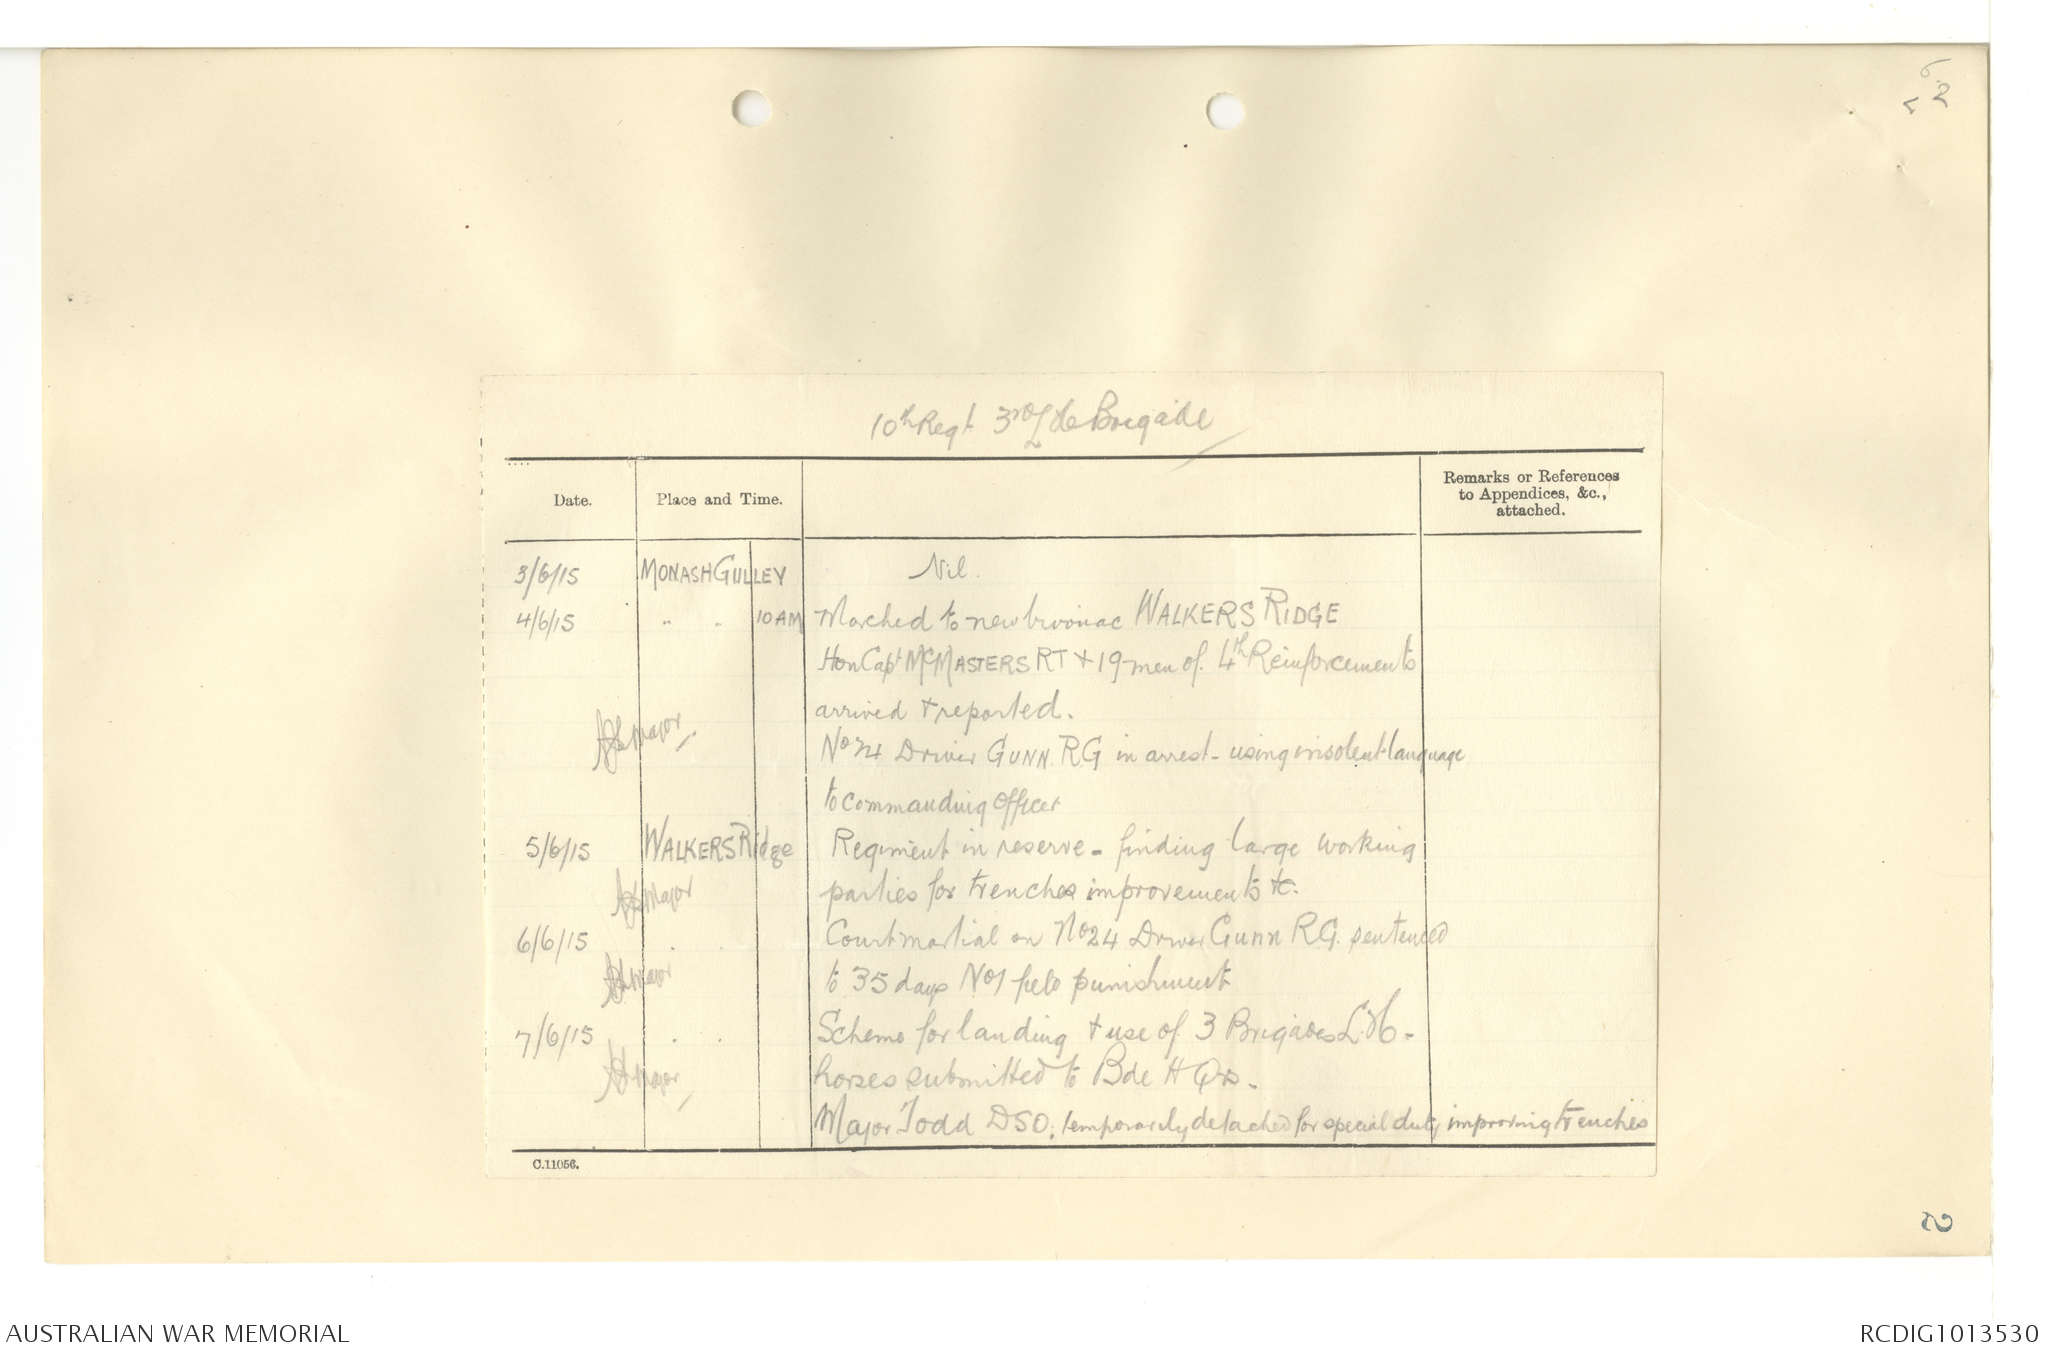 10th Regt 3rd L de Brigade
Date. Place and Time. Remarks or References to Appendices, &c., attached.
3/6/15 MONASH GULLEY Nil.
4/6/15 " " 10 AM Marched to new bivouac WALKERS RIDGE
Hon Capt McMASTERS RT + 19 men of 4th Reinforcements
arrived + reported.
Major
No 24 Driver GUNN RG in arrest - using insolent language
to commanding officer
5/6/15 WALKERS Ridge Regiment in reserve - finding large working
Major parties for trenches improvements &c.
6/6/15 " " Court martial on No 24 Driver Gunn R.G. sentenced
Major to 35 days No 1 field punishment
7/6/15 " " Scheme for landing + use of 3 Brigades L.H.
Major horses submitted to Bde H Qrs.
Major Todd DSO. temporarily detached for special duty improving trenches
C.11056.
AUSTRALIAN WAR MEMORIAL RCDIG1013530